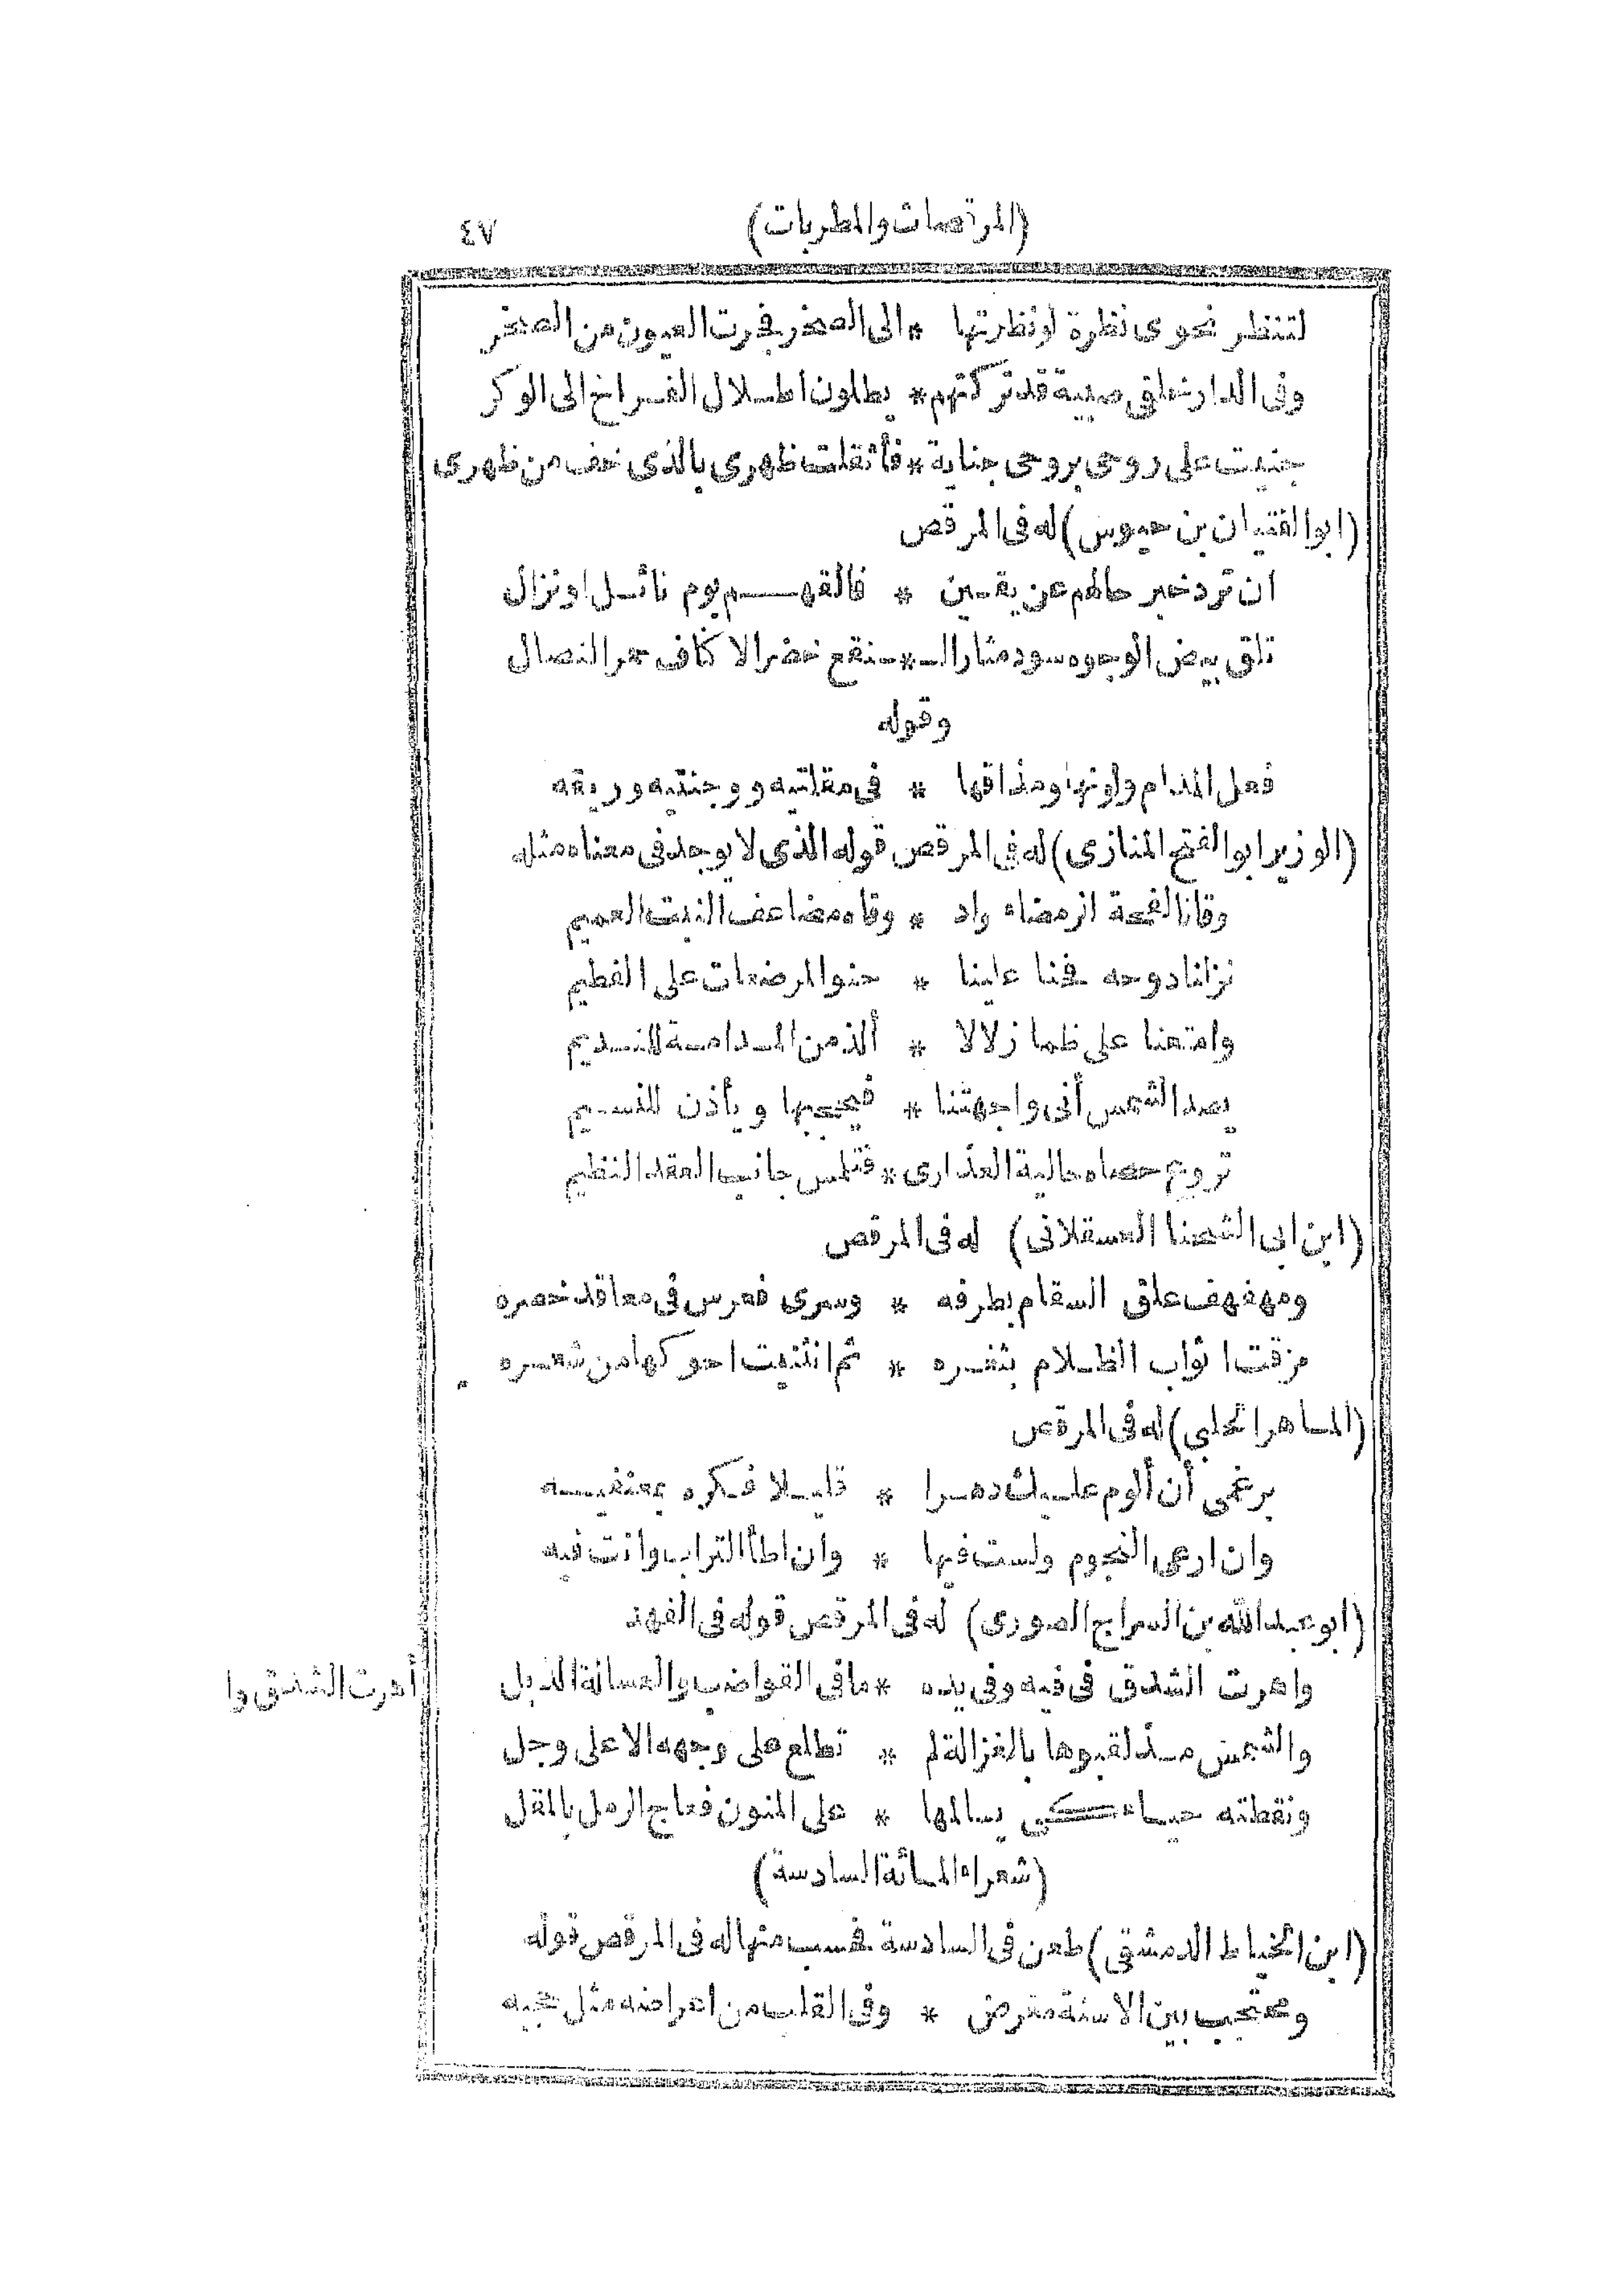 (المرقصات والمطربات)
٤٧
لتنظر نحوى نظرة لونظرتها * الى الصخر فجرت العيون من الصخر
وفى الدار خلفى صبية قد تركتهم * يطلون اطلال الفراخ الى الوكر
جنيت على روحى بروحى جناية * فأثقلت ظهرى بالذى خف من ظهرى
(ابو الفتيان بن حيوس) له فى المرقص
ان ترد خبر حالهم عن يقين * فالقهم يوم نائل او نزال
تلق بيض الوجوه سود مثار الـ * ـنقع خضر الاكناف حمر النصال
وقوله
فعل المدام ولونها ومذاقها * فى مقلتيه ووجنتيه وريقه
(الوزير ابو الفتح المنازى) له فى المرقص قوله الذى لا يوجد فى معناه مثله
وقانا لفحة الرمضاء واد * وقاه مضاعف النبت العميم
نزلنا دوحه فحنا علينا * حنو المرضعات على الفطيم
وامتعنا على ظما زلالا * ألذ من المدامة للنديم
يصد الشمس أنى واجهتنا * فيحجبها ويأذن للنسيم
تروع حصاه حالية العذارى * فتلمس جانب العقد النظيم
(ابن ابى الشخنا العسقلانى) له فى المرقص
ومهفهف علق السقام بطرفه * وسرى فعرس فى معاقد خصره
مزقت اثواب الظلام بثغره * ثم انثنيت احوكها من شعره
(الماهر الحلبى) له فى المرقص
برغمى أن ألوم عليك دهرا * قليلا فكره بمعنفيه
وان ارعى النجوم ولست فيها * وان اطأ التراب وانت فيه
(ابو عبد الله بن السراج الصورى) له فى المرقص قوله فى الفهد
واهرت الشدق فى فيه وفى يده * ما فى القواضب والعسالة الذبل
أهرت الشدق وا
والشمس مذ لقبوها بالغزالة لم * تطلع على وجهه الا على وجل
ونقطته حباء كى يسالمها * على المنون فعاج الرمل بالمقل
(شعراء المائة السادسة)
(ابن الخياط الدمشقى) طعن فى السادسة فحسب منها له فى المرقص قوله
ومحتجب بين الاسنة معرض * وفى القلب من اعراضه مثل حجبه